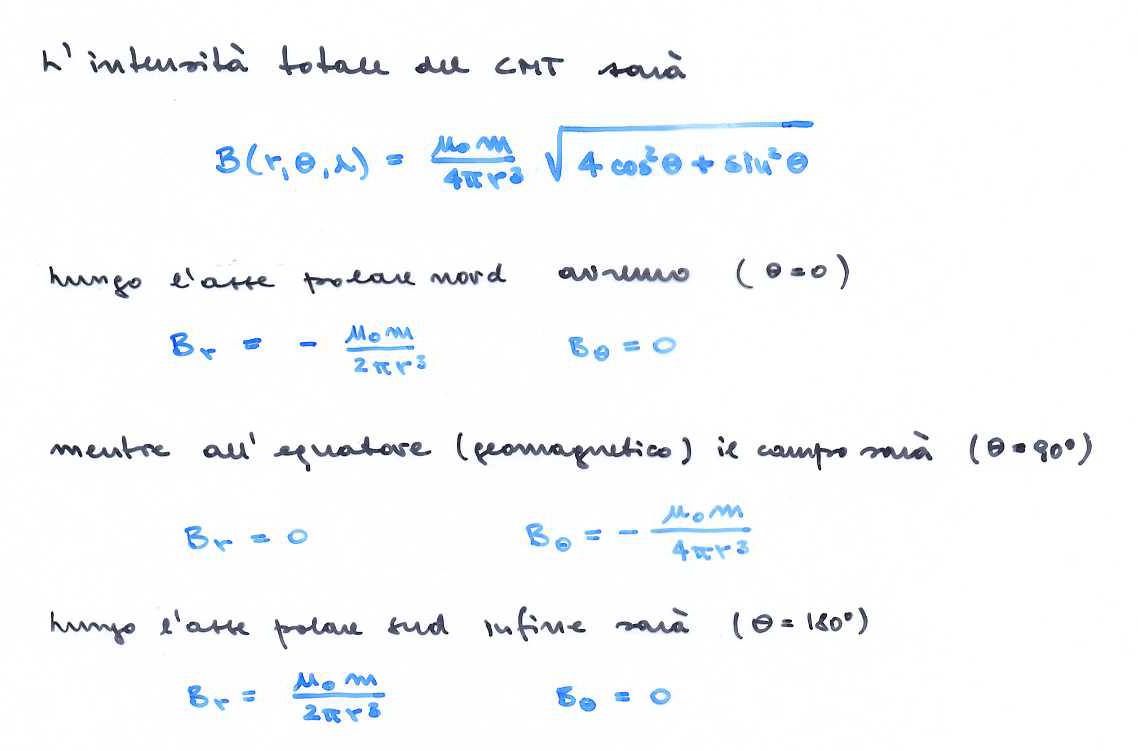 L'intensità totale del CMT sarà
B(r,θ,λ) = μ₀m/4πr³ √(4cos²θ + sin²θ)
Lungo l'asse polare nord avremo (θ=0)
Bᵣ = - μ₀m/2πr³ B_θ = 0
mentre all'equatore (geomagnetico) il campo sarà (θ=90°)
Bᵣ = 0 B_θ = - μ₀m/4πr³
Lungo l'asse polare sud infine sarà (θ=180°)
Bᵣ = μ₀m/2πr³ B_θ = 0